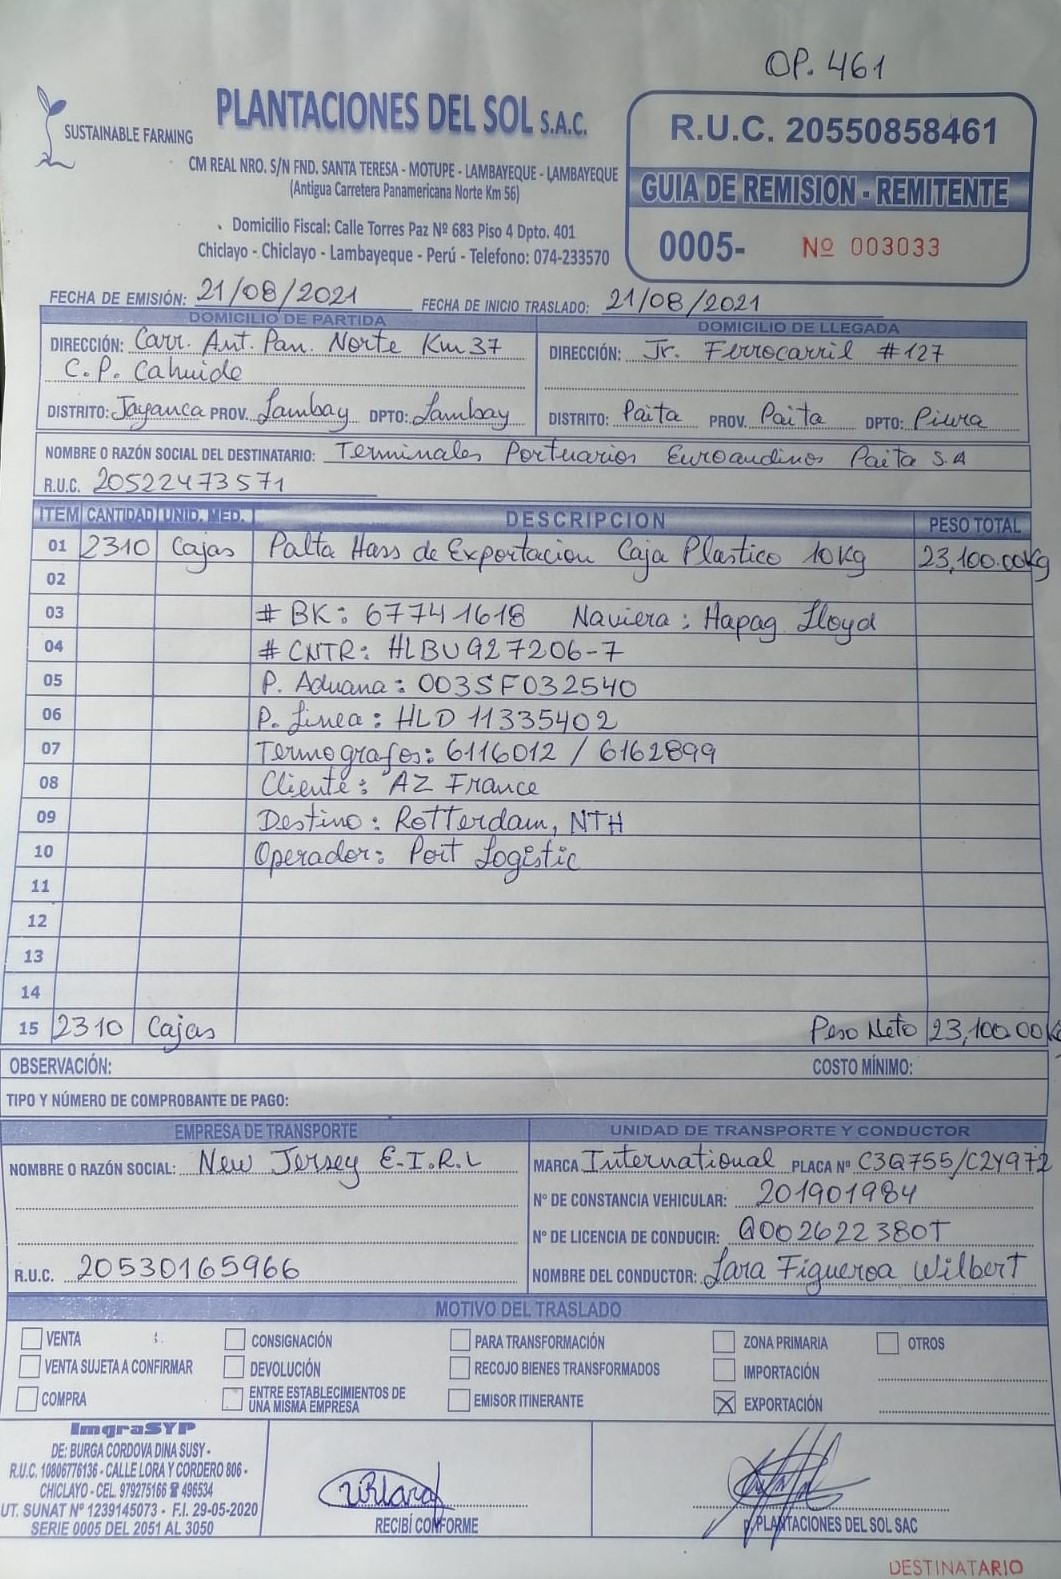 OP. 461
SUSTAINABLE FARMING
PLANTACIONES DEL SOL S.A.C.
CM REAL NRO. S/N FND. SANTA TERESA - MOTUPE - LAMBAYEQUE - LAMBAYEQUE
(Antigua Carretera Panamericana Norte Km 56)
Domicilio Fiscal: Calle Torres Paz Nº 683 Piso 4 Dpto. 401
Chiclayo - Chiclayo - Lambayeque - Perú - Telefono: 074-233570
R.U.C. 20550858461
GUIA DE REMISION - REMITENTE
0005- Nº 003033
FECHA DE EMISIÓN: 21/08/2021 FECHA DE INICIO TRASLADO: 21/08/2021
DOMICILIO DE PARTIDA DOMICILIO DE LLEGADA
DIRECCIÓN: Carr. Ant. Pan. Norte Km 37 DIRECCIÓN: Jr. Ferrocarril #127
C.P. Cahuide
DISTRITO: Jayanca PROV. Lambay DPTO: Lambay DISTRITO: Paita PROV. Paita DPTO: Piura
NOMBRE O RAZÓN SOCIAL DEL DESTINATARIO: Terminales Portuarios Euroandinos Paita S.A
R.U.C. 20522473571
ITEM CANTIDAD UNID. MED. DESCRIPCION PESO TOTAL
01 2310 Cajas Palta Hass de Exportacion Caja Plastico 10Kg 23,100.00Kg
02
03 # BK: 67741618 Naviera: Hapag Lloyd
04 # CNTR: HLBU 927206-7
05 P. Aduana: 003SF032540
06 P. Linea: HLD 11335402
07 Termografos: 6116012 / 6162899
08 Cliente: AZ France
09 Destino: Rotterdam, NTH
10 Operador: Port Logistic
11
12
13
14
15 2310 Cajas Peso Neto 23,100.00K
OBSERVACIÓN: COSTO MÍNIMO:
TIPO Y NÚMERO DE COMPROBANTE DE PAGO:
EMPRESA DE TRANSPORTE UNIDAD DE TRANSPORTE Y CONDUCTOR
NOMBRE O RAZÓN SOCIAL: New Jersey E.I.R.L MARCA International PLACA Nº C3Q755/C2Y972
Nº DE CONSTANCIA VEHICULAR: 201901984
Nº DE LICENCIA DE CONDUCIR: Q002622380T
R.U.C. 20530165966 NOMBRE DEL CONDUCTOR: Lara Figueroa Wilbert
MOTIVO DEL TRASLADO
VENTA CONSIGNACIÓN PARA TRANSFORMACIÓN ZONA PRIMARIA OTROS
VENTA SUJETA A CONFIRMAR DEVOLUCIÓN RECOJO BIENES TRANSFORMADOS IMPORTACIÓN
COMPRA ENTRE ESTABLECIMIENTOS DE UNA MISMA EMPRESA EMISOR ITINERANTE X EXPORTACIÓN
ImgraSYP
DE: BURGA CORDOVA DINA SUSY -
R.U.C. 10806776136 - CALLE LORA Y CORDERO 806 -
CHICLAYO - CEL. 979275166 ☎ 496534
UT. SUNAT Nº 1239145073 - F.I. 29-05-2020
SERIE 0005 DEL 2051 AL 3050
RECIBÍ CONFORME
p. PLANTACIONES DEL SOL SAC
DESTINATARIO